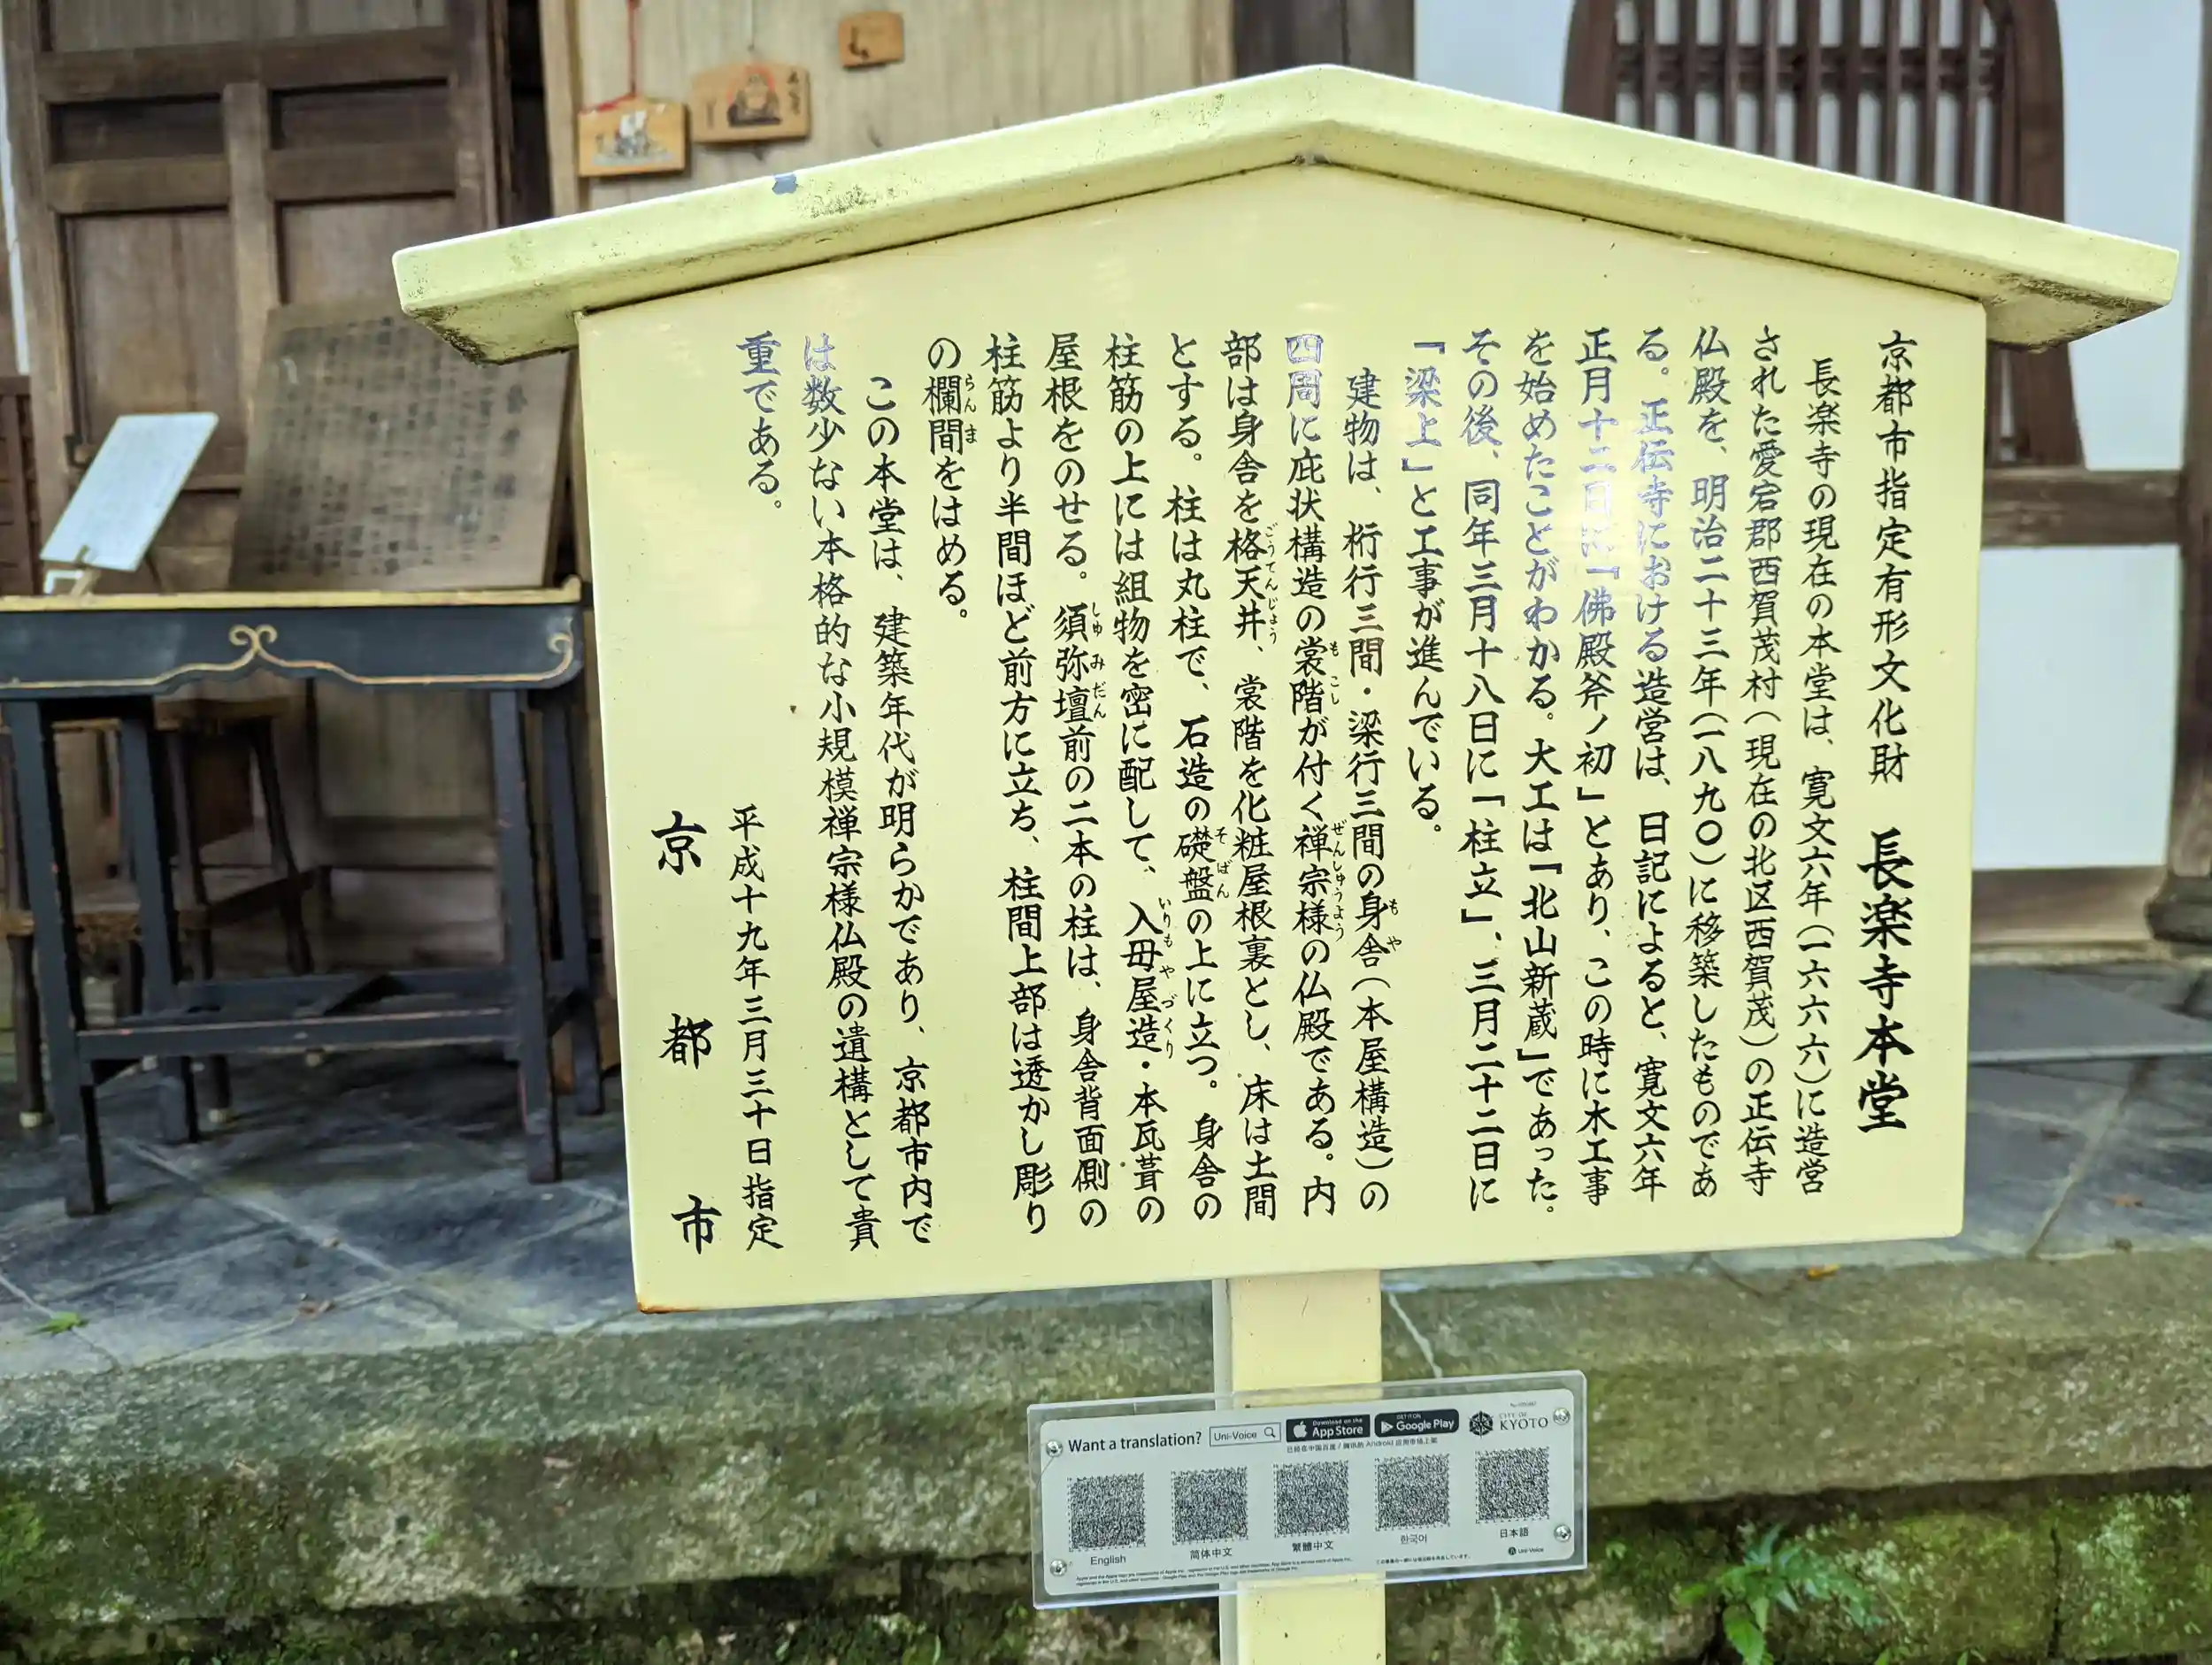 京都市指定有形文化財 長楽寺本堂
長楽寺の現在の本堂は、寛文六年(一六六六)に造営
された愛宕郡西賀茂村(現在の北区西賀茂)の正伝寺
仏殿を、明治二十三年(一八九〇)に移築したものであ
る。正伝寺における造営は、日記によると、寛文六年
正月十二日に「佛殿斧ノ初」とあり、この時に木工事
を始めたことがわかる。大工は「北山新蔵」であった。
その後、同年三月十八日に「柱立」、三月二十二日に
「梁上」と工事が進んでいる。
建物は、桁行三間・梁行三間の身舎(本屋構造)の
四周に庇状構造の裳階が付く禅宗様の仏殿である。内
部は身舎を格天井、裳階を化粧屋根裏とし、床は土間
とする。柱は丸柱で、石造の礎盤の上に立つ。身舎の
柱筋の上には組物を密に配して、入母屋造・本瓦葺の
屋根をのせる。須弥壇前の二本の柱は、身舎背面側の
柱筋より半間ほど前方に立ち、柱間上部は透かし彫り
の欄間をはめる。
この本堂は、建築年代が明らかであり、京都市内で
は数少ない本格的な小規模禅宗様仏殿の遺構として貴
重である。
平成十九年三月三十日指定
京都市
Want a translation? Uni-Voice Download on the App Store GET IT ON Google Play CITY OF KYOTO
English 简体中文 繁體中文 한국어 日本語
Uni-Voice